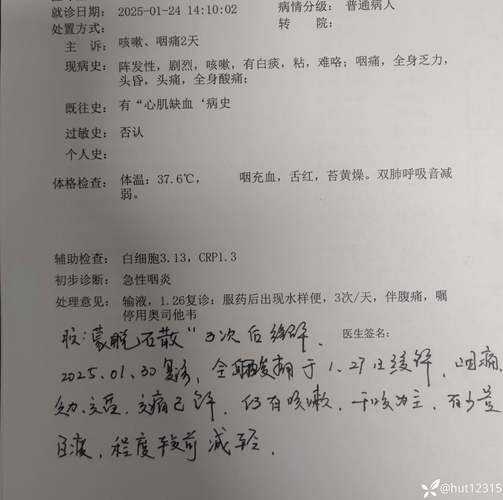 就诊日期： 2025-01-24 14:10:02 病情分级： 普通病人
处置方式： 转 院：
主 诉： 咳嗽、咽痛2天
现病史： 阵发性，剧烈，咳嗽，有白痰，粘，难咯；咽痛，全身乏力，
头昏，头痛，全身酸痛；
既往史： 有“心肌缺血‘病史
过敏史： 否认
个人史：
体格检查： 体温：37.6℃， 咽充血，舌红，苔黄燥。双肺呼吸音减
弱。
辅助检查： 白细胞3.13，CRP1.3
初步诊断： 急性咽炎
处理意见： 输液，1.26复诊：服药后出现水样便，3次/天，伴腹痛，嘱
停用奥司他韦
医生签名：
服：蒙脱石散”3次后缓解．
2025.01.30复诊，全身酸痛于1.27日缓解，咽痛
乏力，头痛已解．仍有咳嗽，干咳为主，有少量
白痰，程度较前减轻．
@hut12315